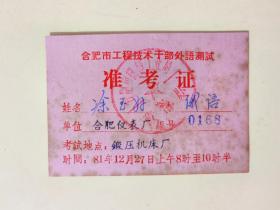 合肥市工程技术干部外語測試
准考证
姓名 涂玉 俄语
单位 合肥仪表厂 编号 0168
考试地点：鍛压机床厂
时間：81年12月27日上午8时至10时半